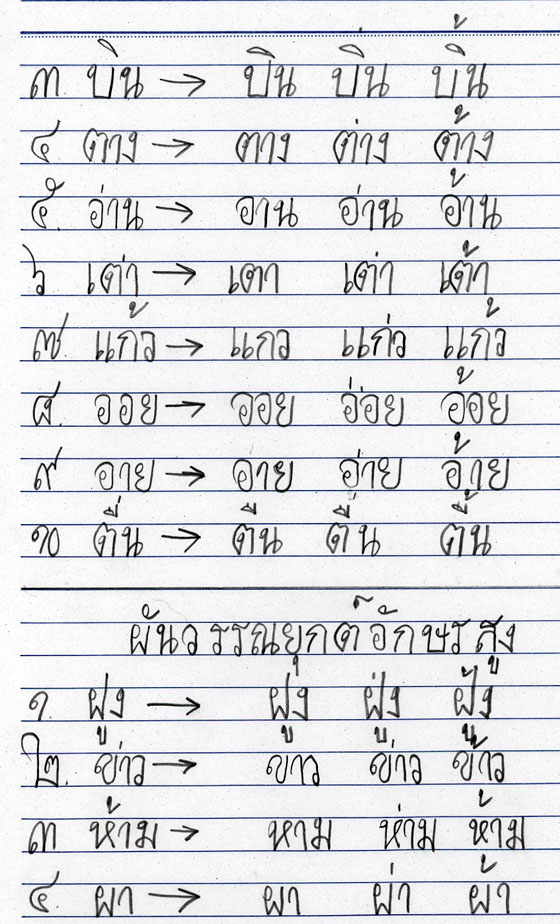 ๓ บิน → บิน บิ่น บิ้น
๔ ตาง → ตาง ต่าง ต้าง
๕. อ่าน → อาน อ่าน อ้าน
๖ เต่า → เตา เต่า เต้า
๗. แก้ว → แกว แก่ว แก้ว
๘. ออย → ออย อ่อย อ้อย
๙ อาย → อาย อ่าย อ้าย
๑๐ ตื่น → ตืน ตื่น ตื้น
ผันวรรณยุกต์อักษรสูง
๑. ฝูง → ฝูง ฝู่ง ฝู้ง
๒. ข่าว → ขาว ข่าว ข้าว
๓ ห้าม → หาม ห่าม ห้าม
๔. ผา → ผา ผ่า ผ้า